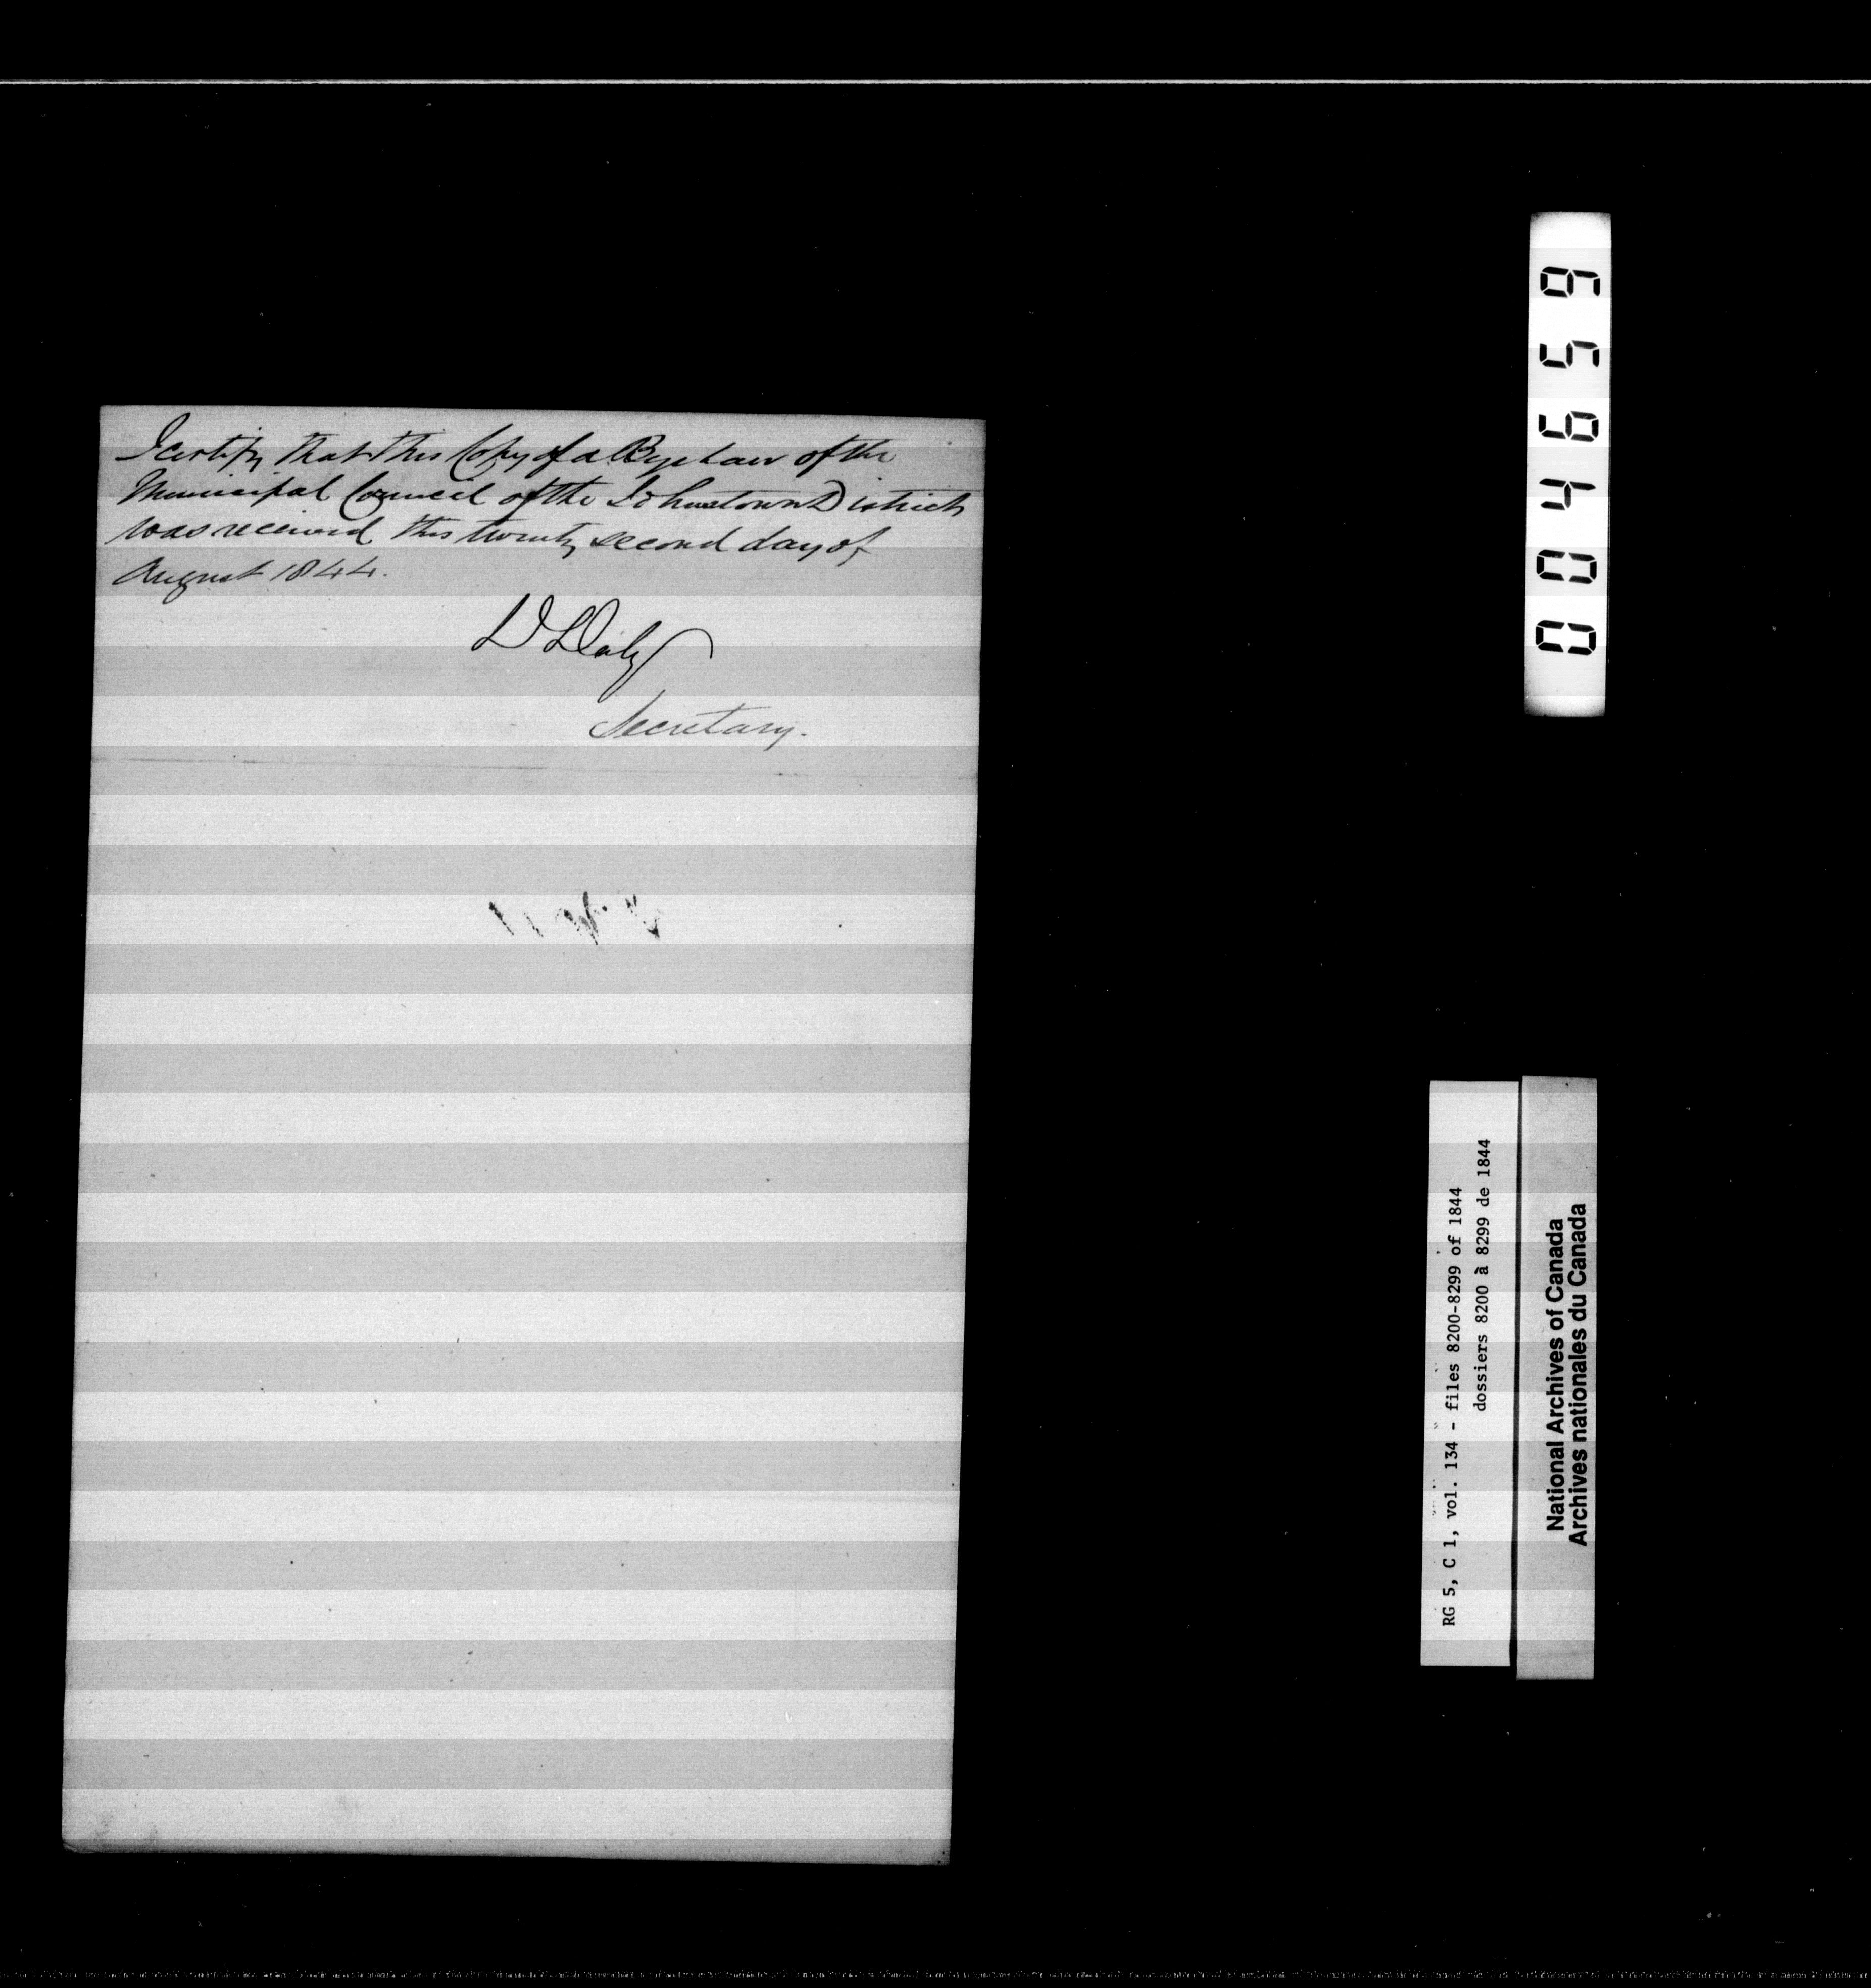 I certify that this Copy of a Bye Law of the
Municipal Council of the Johnstown District
was received this twenty second day of
August 1844.
D Daly
Secretary.
004659
RG 5, C 1, vol. 134 - files 8200-8299 of 1844
dossiers 8200 à 8299 de 1844
National Archives of Canada
Archives nationales du Canada